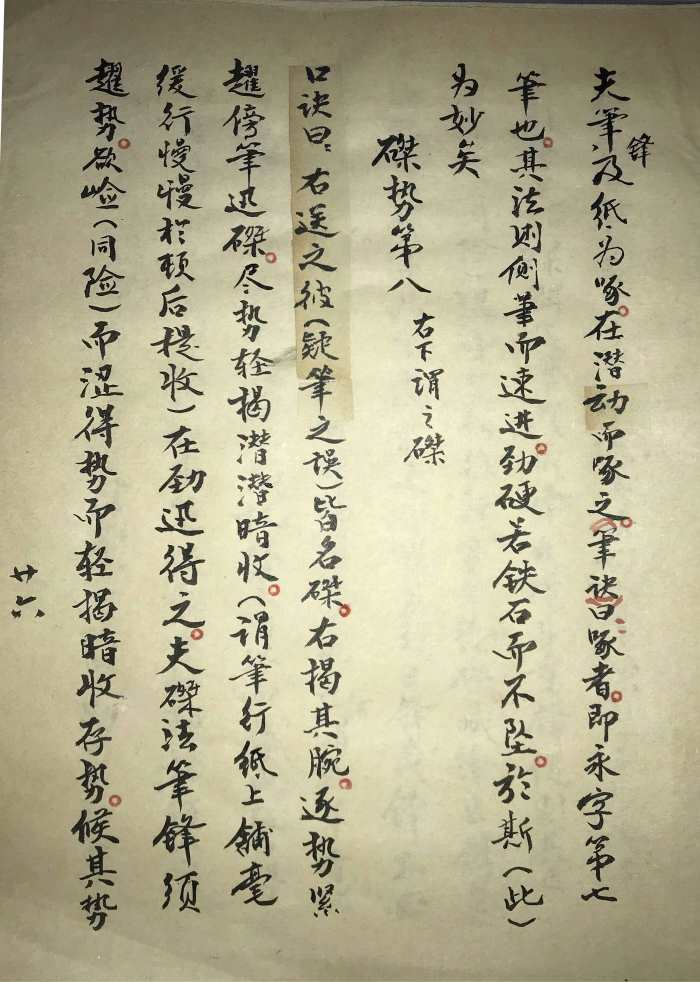 夫筆锋及纸为啄。在潜动而啄之。筆诀曰：啄者。即永字第七
筆也。其法则侧筆而速进。劲硬若铁石而不坠。於斯（此）
为妙矣
磔势第八 右下谓之磔
口诀曰：右送之彼（疑筆之误）皆名磔。右揭其腕。逐势紧
趯傍筆迅磔。尽势轻揭潜潜暗收。（谓筆行纸上铺毫
缓行慢慢於顿后提收）在劲迅得之。夫磔法筆锋须
趯势。欲崄（同险）而涩得势而轻揭暗收存势。候其势
廿六